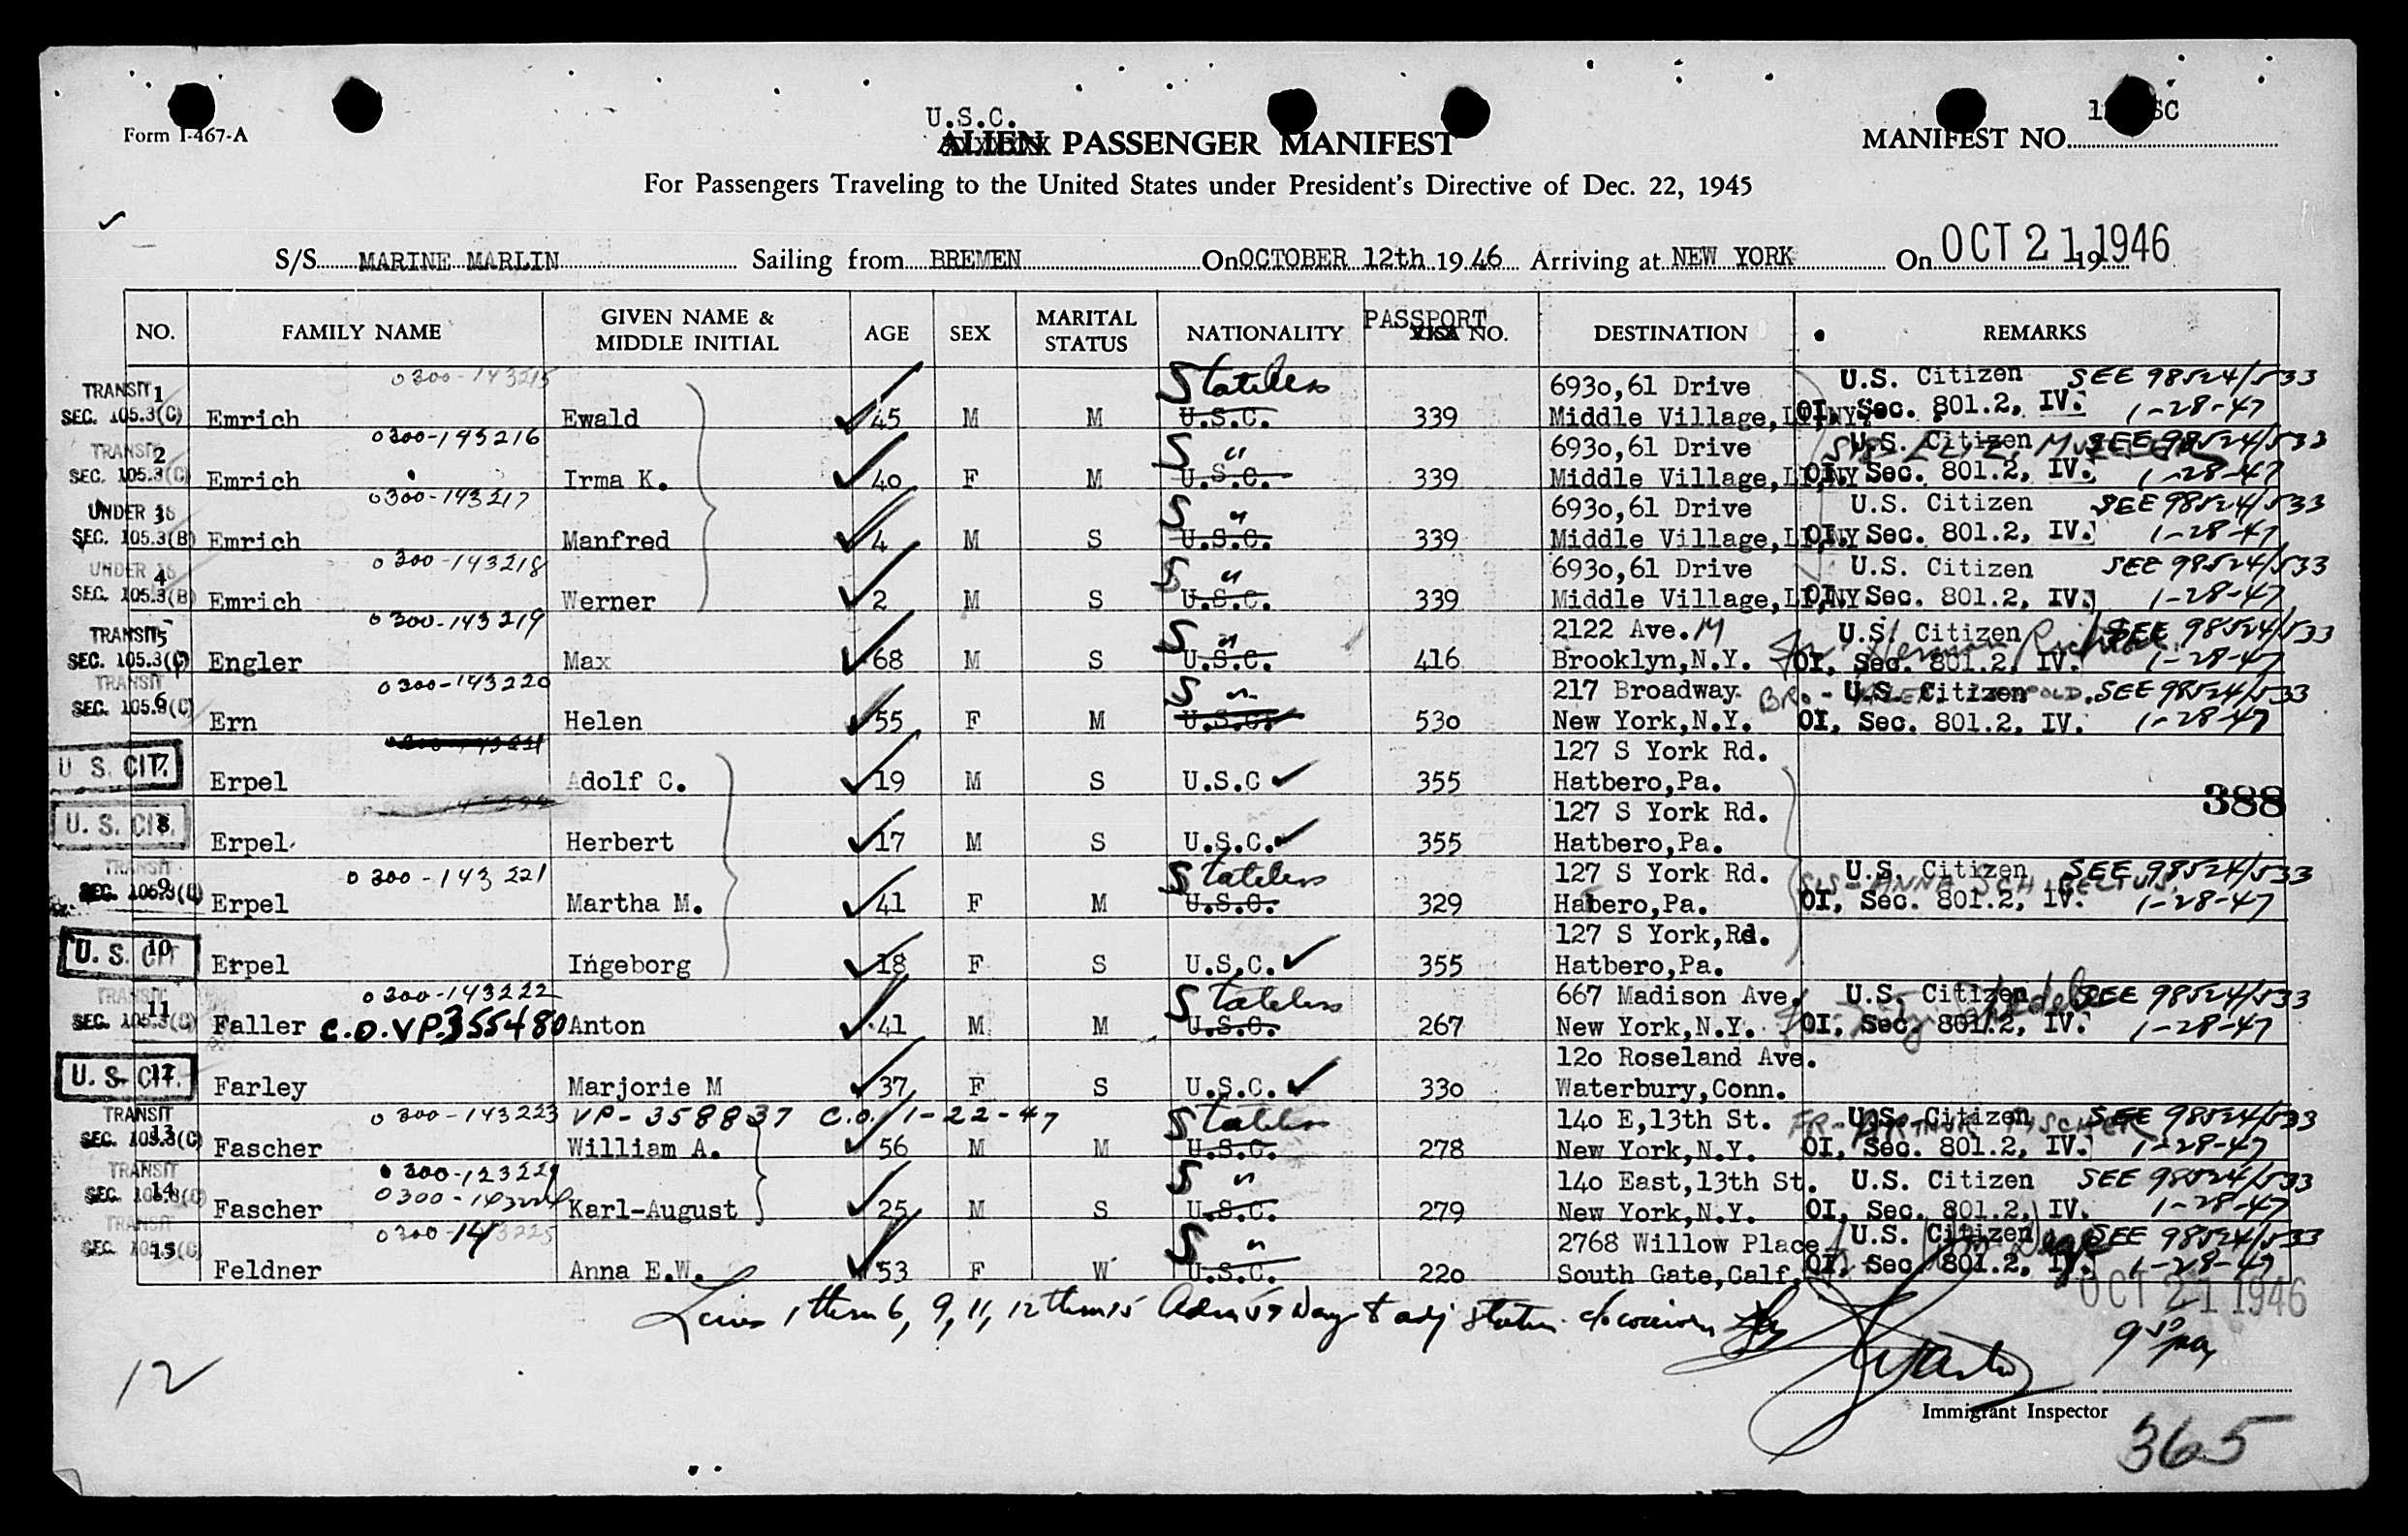 Form I-467-A
U.S.C.
ALIEN PASSENGER MANIFEST
MANIFEST NO.
For Passengers Traveling to the United States under President's Directive of Dec. 22, 1945
S/S MARINE MARLIN Sailing from BREMEN On OCTOBER 12th 19 46 Arriving at NEW YORK On OCT 21 1946 19
NO. FAMILY NAME GIVEN NAME & MIDDLE INITIAL AGE SEX MARITAL STATUS NATIONALITY PASSPORT VISA NO. DESTINATION REMARKS
0300-143215 Stateless 6930,61 Drive U.S. Citizen SEE 98524/533
TRANSIT SEC. 105.3(C) 1 Emrich Ewald 45 M M U.S.C. 339 Middle Village,LI,NY OI, Sec. 801.2, IV. 1-28-47
0300-143216 S " 6930,61 Drive U.S. Citizen SEE 98524/533
TRANSIT SEC. 105.3(C) 2 Emrich Irma K. 40 F M U.S.C. 339 Middle Village,LI,NY OI, Sec. 801.2, IV. 1-28-47
0300-143217 S " 6930,61 Drive U.S. Citizen SEE 98524/533
UNDER 16 SEC. 105.3(B) 3 Emrich Manfred 4 M S U.S.C. 339 Middle Village,LI,NY OI, Sec. 801.2, IV. 1-28-47
0300-143218 S " 6930,61 Drive U.S. Citizen SEE 98524/533
UNDER 16 SEC. 105.3(B) 4 Emrich Werner 2 M S U.S.C. 339 Middle Village,LI,NY OI, Sec. 801.2, IV. 1-28-47
0300-143219 S " 2122 Ave. M U.S. Citizen SEE 98524/533
TRANSIT SEC. 105.3(C) 5 Engler Max 68 M S U.S.C. 416 Brooklyn,N.Y. OI, Sec. 801.2, IV. 1-28-47
0300-143220 S " 217 Broadway BRO- U.S. Citizen SEE 98524/533
TRANSIT SEC. 105.3(C) 6 Ern Helen 55 F M U.S.C. 530 New York,N.Y. OI, Sec. 801.2, IV. 1-28-47
127 S York Rd.
U S. CIT. 7 Erpel Adolf C. 19 M S U.S.C 355 Hatbero,Pa.
388
127 S York Rd.
U. S. CIT. 8 Erpel Herbert 17 M S U.S.C. 355 Hatbero,Pa.
0300-143221 Stateless 127 S York Rd. U.S. Citizen SEE 98524/533
TRANSIT SEC. 105.3(C) 9 Erpel Martha M. 41 F M U.S.C. 329 Habero,Pa. OI, Sec. 801.2, IV. 1-28-47
127 S York,Rd.
U. S. CIT 10 Erpel Ingeborg 18 F S U.S.C. 355 Hatbero,Pa.
0300-143222 Stateless 667 Madison Ave, U.S. Citizen SEE 98524/533
TRANSIT SEC. 105.3(C) 11 Faller C.O.VP.355480 Anton 41 M M U.S.C. 267 New York,N.Y. OI, Sec. 801.2, IV. 1-28-47
120 Roseland Ave.
U. S. CIT. 12 Farley Marjorie M 37 F S U.S.C. 330 Waterbury,Conn.
0300-143223 VP-358837 C.O. 1-22-47 Stateless 140 E,13th St. U.S. Citizen SEE 98524/533
TRANSIT SEC. 105.3(C) 13 Fascher William A. 56 M M U.S.C. 278 New York,N.Y. OI, Sec. 801.2, IV. 1-28-47
0300-143224 S " 140 East,13th St. U.S. Citizen SEE 98524/533
TRANSIT SEC. 105.3(C) 14 Fascher Karl-August 25 M S U.S.C. 279 New York,N.Y. OI, Sec. 801.2, IV. 1-28-47
0300-143225 S " 2768 Willow Place U.S. Citizen SEE 98524/533
TRANSIT SEC. 105.3(C) 15 Feldner Anna E.W. 53 F W U.S.C. 220 South Gate,Calf, OI, Sec. 801.2, IV. 1-28-47
OCT 21 1946
Lines 1 thru 6, 9, 11, 12 thru 15
12
Immigrant Inspector
365